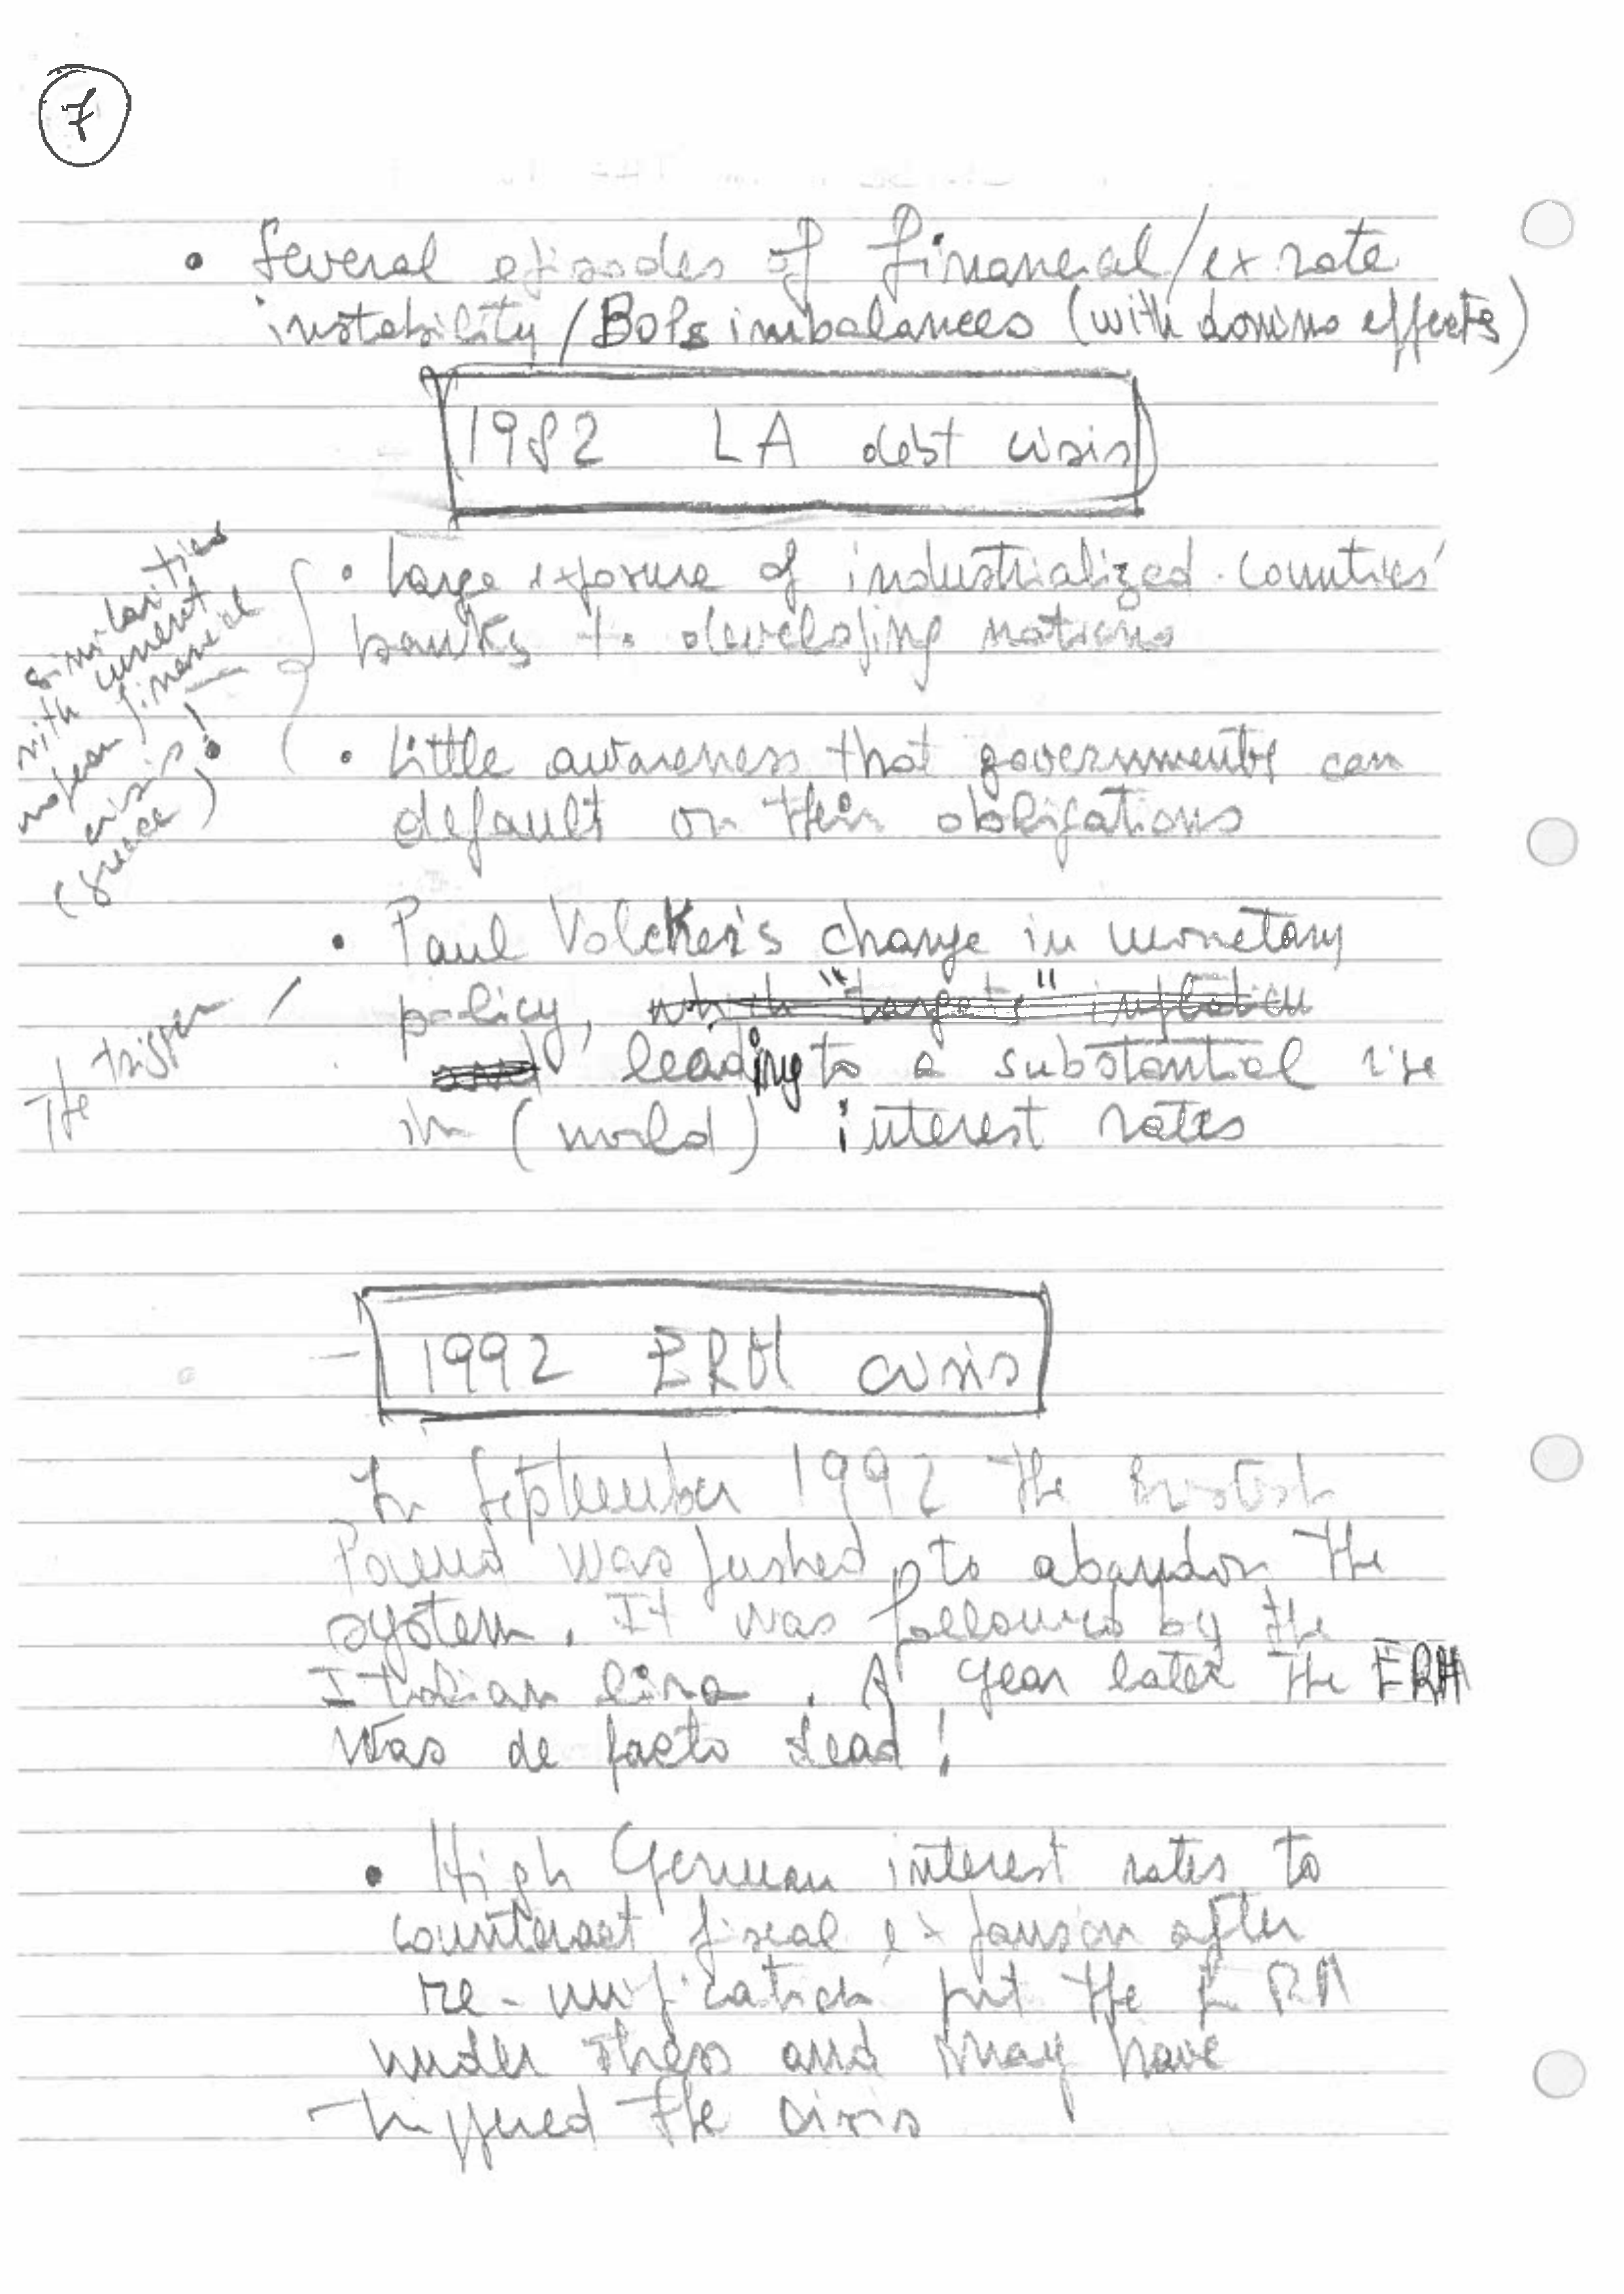 7
• Several episodes of financial/ex rate
instability/BoPs imbalances (with domino effects)
1982 LA debt crisis
• Large exposure of industrialized countries'
banks to developing nations
similarities
with current
european financial
crisis!
(greece)
• Little awareness that governments can
default on their obligations
• Paul Volcker's change in monetary
policy, which "targets" inflation
and leading to a substantial rise
in (world) interest rates
The trigger
1992 ERM crisis
In September 1992 the British
Pound was pushed to abandon the
system. It was followed by the
Italian lira. A year later the ERM
was de facto dead!
• High German interest rates to
counteract fiscal expansion after
re-unification put the ERM
under stress and may have
triggered the crisis